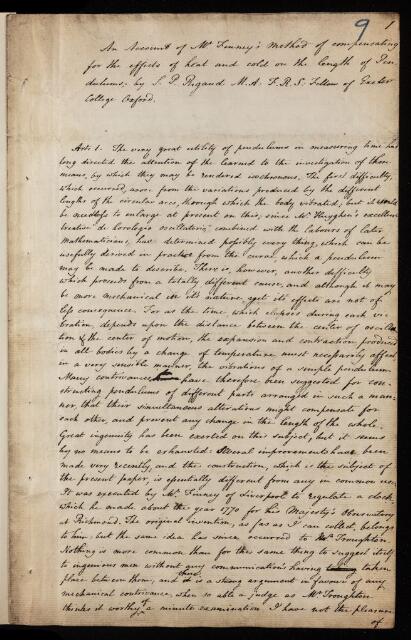 9 1
An Account of Mr Finney's method of compensating
for the effects of heat and cold on the length of Pen-
dulums; by S. P. Rigaud M.A. F.R.S. Fellow of Exeter
College Oxford.
Art. 1. The very great utility of pendulums in measuring time has
long directed the attention of the learned to the investigation of those
means, by which they may be rendered isochronous. The first difficulty,
which occurred, arose from the variations produced by the different
lengths of the circular arcs, through which the body vibrated; but it would
be needless to enlarge at present on this, since Mr Huyghen's excellent
treatise de horologio oscillatorio combined with the labours of later
Mathematicians, has determined possibly every thing, which can be
usefully derived in practice from the curve, which a pendulum
may be made to describe. There is, however, another difficulty
which proceeds from a totally different cause, and although it may
be more mechanical in its nature, yet its effects are not of
less consequence. For as the time, which elapses during each vi-
bration, depends upon the distance between the center of oscilla-
tion & the center of motion, the expansion and contraction produced
in all bodies by a change of temperature must necessarily affect
in a very sensible manner, the vibrations of a simple pendulum.
Many contrivances have therefore been suggested for con-
structing pendulums of different parts arranged in such a man-
ner, that their simultaneous alterations might compensate for
each other, and prevent any change in the length of the whole.
Great ingenuity has been exerted on this subject, but it seems
by no means to be exhausted. Several improvements have been
made very recently, and the construction, which is the subject of
the present paper, is essentially different from any in common use.
It was executed by Mr Finney of Liverpool to regulate a clock
which he made about the year 1770 for his Majesty's Observatory
at Richmond. The original invention, as far as I can collect, belongs
to him; but the same idea has since occurred to Mr Troughton.
Nothing is more common than for the same thing to suggest itself
to ingenious men without any communication's having taken
place between them, and it is a strong argument in favour of any
mechanical contrivance, when so able a judge as Mr Troughton
thinks it worthy of a minute examination. I have not the pleasure
of